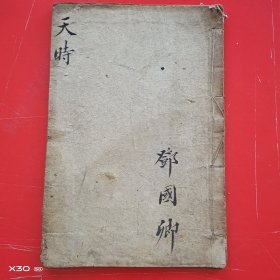 天時
鄧國卿
X30